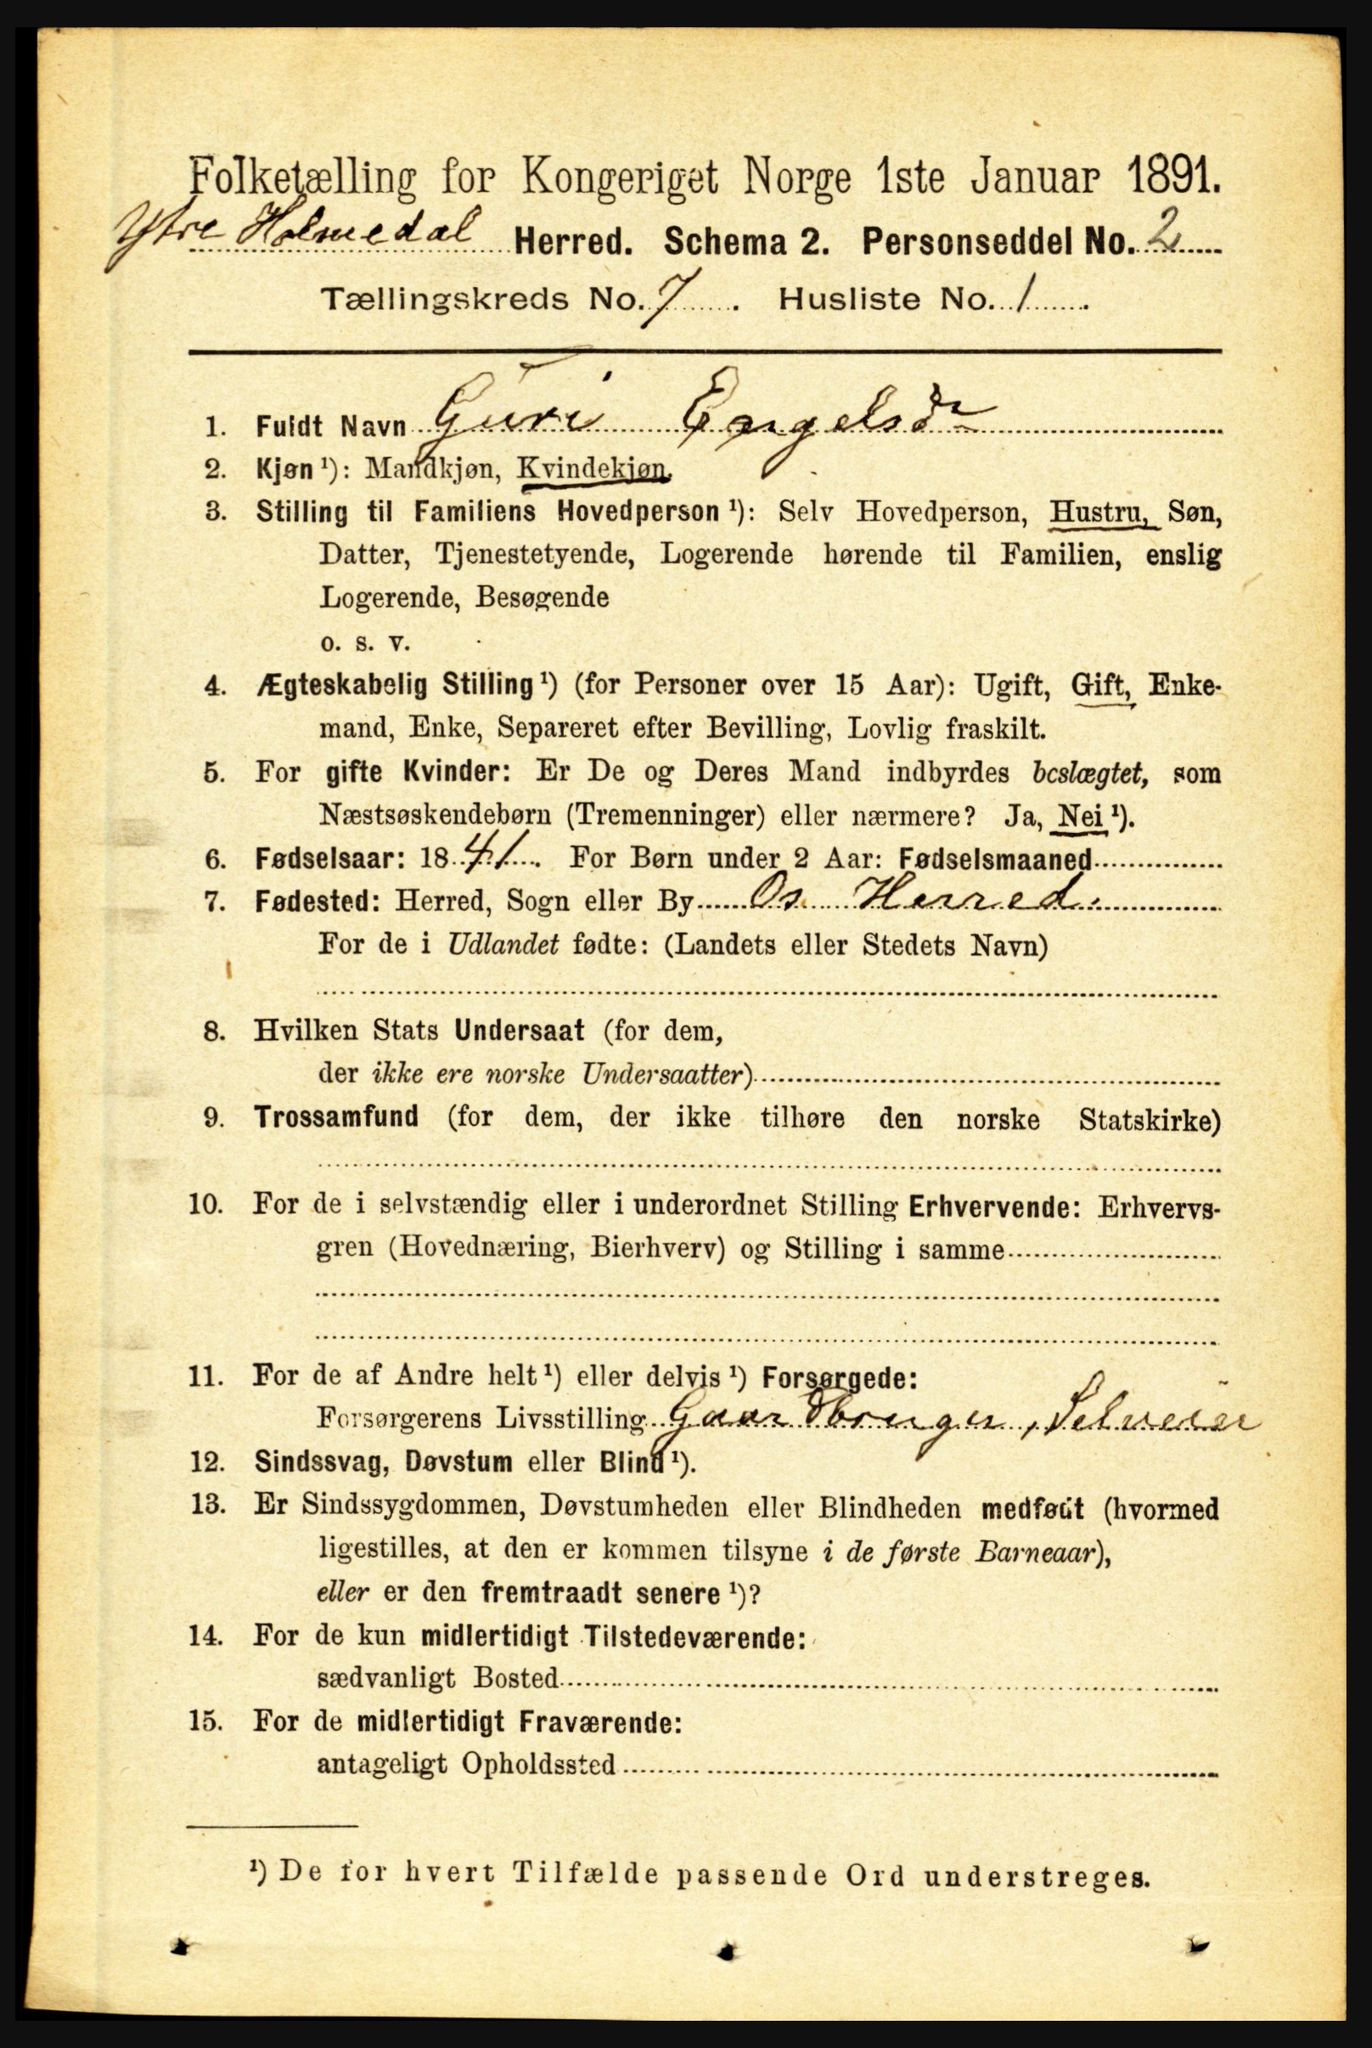 Folketælling for Kongeriget Norge 1ste Januar 1891.
Ytre Holmedal Herred. Schema 2. Personseddel No. 2
Tællingskreds No. 7. Husliste No. 1.
1. Fuldt Navn Guri Engelsdr
2. Kjøn ¹): Mandkjøn, Kvindekjøn.
3. Stilling til Familiens Hovedperson ¹): Selv Hovedperson, Hustru, Søn,
Datter, Tjenestetyende, Logerende hørende til Familien, enslig
Logerende, Besøgende
o. s. v.
4. Ægteskabelig Stilling ¹) (for Personer over 15 Aar): Ugift, Gift, Enke-
mand, Enke, Separeret efter Bevilling, Lovlig fraskilt.
5. For gifte Kvinder: Er De og Deres Mand indbyrdes beslægtet, som
Næstsøskendebørn (Tremenninger) eller nærmere? Ja, Nei ¹).
6. Fødselsaar: 1841. For Børn under 2 Aar: Fødselsmaaned
7. Fødested: Herred, Sogn eller By Os Herred.
For de i Udlandet fødte: (Landets eller Stedets Navn)
8. Hvilken Stats Undersaat (for dem,
der ikke ere norske Undersaatter)
9. Trossamfund (for dem, der ikke tilhøre den norske Statskirke)
10. For de i selvstændig eller i underordnet Stilling Erhvervende: Erhvervs-
gren (Hovednæring, Bierhverv) og Stilling i samme
11. For de af Andre helt ¹) eller delvis ¹) Forsørgede:
Forsørgerens Livsstilling Gaardbruger, Selveier
12. Sindssvag, Døvstum eller Blind ¹).
13. Er Sindssygdommen, Døvstumheden eller Blindheden medfødt (hvormed
ligestilles, at den er kommen tilsyne i de første Barneaar),
eller er den fremtraadt senere ¹)?
14. For de kun midlertidigt Tilstedeværende:
sædvanligt Bosted
15. For de midlertidigt Fraværende:
antageligt Opholdssted
¹) De for hvert Tilfælde passende Ord understreges.